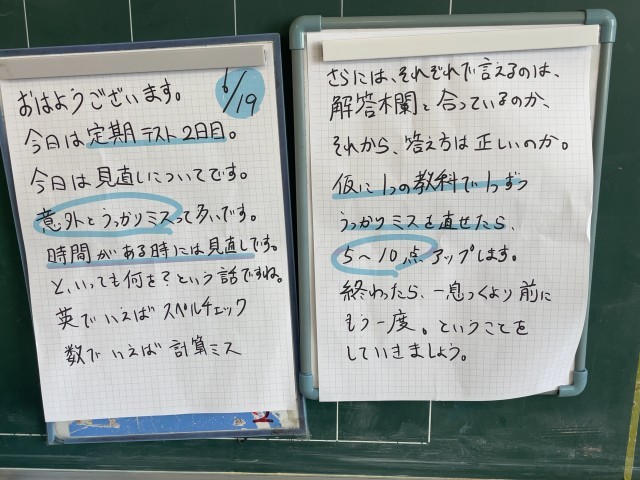 おはようございます。
6/19
今日は定期テスト2日目。
今日は見直しについてです。
意外とうっかりミスって多いです。
時間がある時には見直しです。
と、いっても何を?という話ですね。
英でいえばスペルチェック
数でいえば計算ミス
さらには、それぞれで言えるのは、
解答欄と合っているのか、
それから、答え方は正しいのか。
仮に1つの教科で1つずつ
うっかりミスを直せたら、
5〜10点アップします。
終わったら、一息つくより前に
もう一度。ということを
していきましょう。